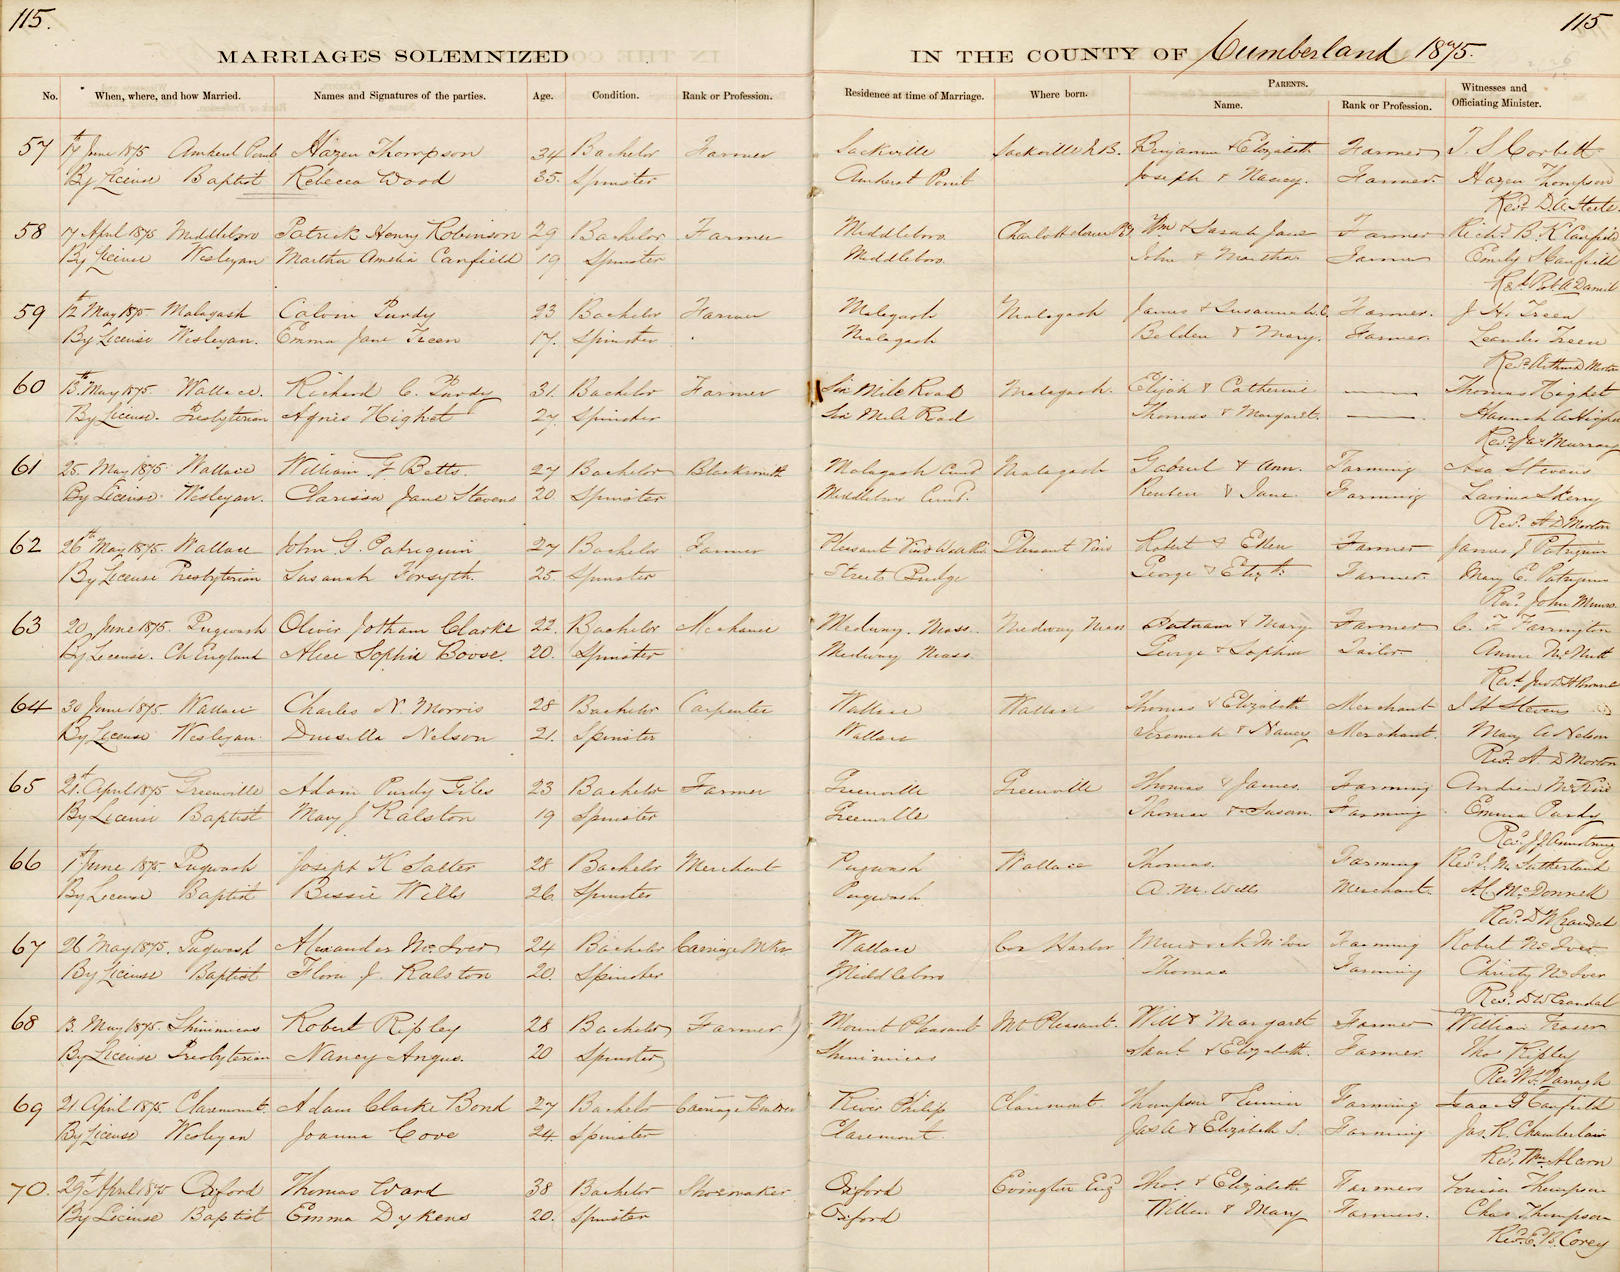 115.
115
MARRIAGES SOLEMNIZED IN THE COUNTY OF Cumberland 1875.
No. When, where, and how Married. Names and Signatures of the parties. Age. Condition. Rank or Profession. Residence at time of Marriage. Where born. PARENTS. Name. Rank or Profession. Witnesses and Officiating Minister.
57 17th June 1875 Amherst Point Hazen Thompson 34 Bachelor Farmer Sackville Sackville N.B. Benjamin & Elizabeth Farmer T. S. Corbett
By License Baptist Rebecca Wood 35. Spinster Amherst Point Joseph & Nancy. Farmer. Hazen Thompson
Revd. D. A. Steele.
58 17 April 1875 Middleboro Patrick Henry Robinson 29 Bachelor Farmer Middleboro Charlottetown Wm & Sarah Jane Farmer Richd. B. K Canfield
By License Wesleyan Martha Amelia Canfield 19 Spinster Middleboro. John & Martha Farmer Emily Canfield
Revd. Robt A Daniel
59 12th May 1875 Malagash Calvin Purdy 23 Bachelor Farmer Malagash Malagash James & Susannah C. Farmer. J H. Treen
By License Wesleyan. Emma Jane Treen 17. Spinster Malagash Belden & Mary. Farmer. Leander Treen
Revd. Arthur D Morton
60 13th May 1875. Wallace. Richard C. Purdy 31. Bachelor Farmer Six Mile Road Malagash. Elijah & Catherine Thomas Highet
By License. Presbyterian Agnes Highet 27. Spinster Six Mile Road Thomas & Margaret. Hannah A Highet
Revd. Jas Murray
61 25. May 1875 Wallace William F Betts. 27 Bachelor Blacksmith Malagash Cumd. Malagash Gabriel & Ann. Farming Asa Stevens
By License Wesleyan. Clarissa Jane Stevens 20 Spinster Middleboro Cumd. Reuben & Jane Farming Lavinia Skerry
Revd. A D Morton
62 26th May 1875. Wallace John G. Patriquin 27 Bachelor Farmer Pleasant View Pleasant View Robert & Ellen Farmer James Patriquin
By License Presbyterian Susanah Forsyth. 25. Spinster Streets Bridge George & Elizth. Farmer. Mary E. Patriquin
Revd. John Munro.
63 20 June 1875. Pugwash Oliver Jotham Clarke 22. Bachelor Mechanic Medway. Mass. Medway Mass Putnam & Mary Farmer C. F Farrington
By License. Ch England Alice Sophia Boose. 20. Spinster Medway Mass. George & Sophia Tailor. Annie McNutt
Revd.
64 30 June 1875. Wallace Charles N Morris 28 Bachelor Carpenter Wallace Wallace Thomas & Elizabeth Merchant I H Stevens
By License Wesleyan Drusilla Nelson 21. Spinster Wallace Jeremiah & Nancy Merchant. Mary A Nelson
Revd. A. D Morton
65 21st. April 1875 Greenville Adam Purdy Giles 23 Bachelor Farmer Greenville Greenville Thomas & James. Farming Andrew
By License Baptist Mary J Ralston 19 Spinster Greenville Thomas & Susan. Farming Emma Purdy
Revd. J Armstrong
66 1st June 1875. Pugwash Joseph K Salter 28 Bachelor Merchant Pugwash Wallace Thomas. Farming Revd. J. M. Sutherland
By License Baptist Bessie Wells 26. Spinster Pugwash. A. M. Wells Merchant. McDonnell
Revd. D W Crandal
67 26 May 1875. Pugwash Alexander McIver 24 Bachelor Carriage Mkr. Wallace Murdoch McIver Farming Robert McIver
By License Baptist Flora J. Ralston 20. Spinster Middleboro Thomas Farming Christy McIver
Revd. D W Crandal
68 13. May 1875. Shinimicas Robert Ripley 28 Bachelor Farmer Mount Pleasant Mt Pleasant. Will & Margaret Farmer William Fraser
By License Presbyterian Nancy Angus. 20 Spinster Shinimicas & Elizabeth. Farmer. Thos Ripley
Revd. W S. Darragh
69 21 April 1875. Claremont. Adam Clarke Bond 27 Bachelor Carriage Builder River Philip Claremont Thompson & Farming Isaac Canfield
By License Wesleyan Joanna Cove 24. Spinster Claremont. Jas A & Elizabeth S. Farming Jas. R. Chamberlain
Revd. Wm. Alcorn
70. 29th April 1875 Oxford Thomas Ward 38 Bachelor Shoemaker Oxford Thos & Elizabeth Farmers Louisa Thompson
By License Baptist Emma Dykens 20. Spinster Oxford & Mary Farmers. Chas Thompson
Revd. E. N. Corey